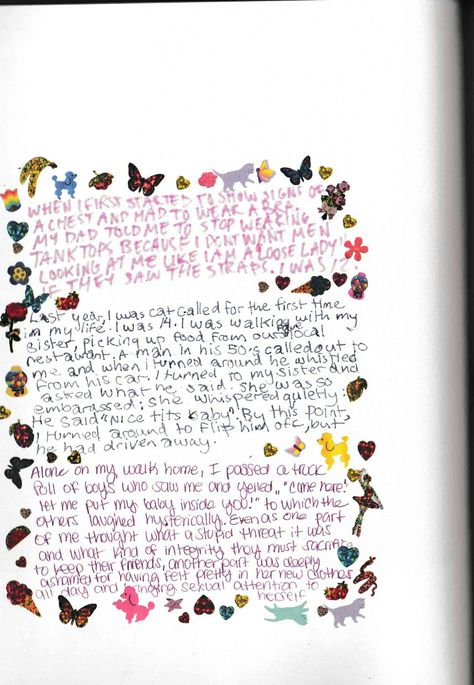 WHEN I FIRST STARTED TO SHOW SIGNS OF
A CHEST AND HAD TO WEAR A BRA,
MY DAD TOLD ME TO STOP WEARING
TANKTOPS, BECAUSE I DON'T WANT MEN
LOOKING AT ME LIKE I AM A LOOSE LADY"
IF THEY SAW THE STRAPS. I WAS 12.
Last year, I was cat called for the first time
in my life. I was 14. I was walking with my
sister, picking up food from our local
restaurant. A man in his 50's called out to
me and when I turned around he whistled
from his car. I turned to my sister and
asked what he said. She was so
embarassed; she whispered quietly.
He said "Nice tits baby". By this point,
I turned around to flip him off, but
he had driven away.
Alone on my walk home, I passed a truck
full of boys who saw me and yelled, "Come here!
let me put my baby inside you!" to which the
others laughed hysterically. Even as one part
of me thought what a stupid threat it was
and what kind of integrity they must sacrifice
to keep their friends, another part was deeply
ashamed for having felt pretty in her new clothes
all day and bringing sexual attention to
herself